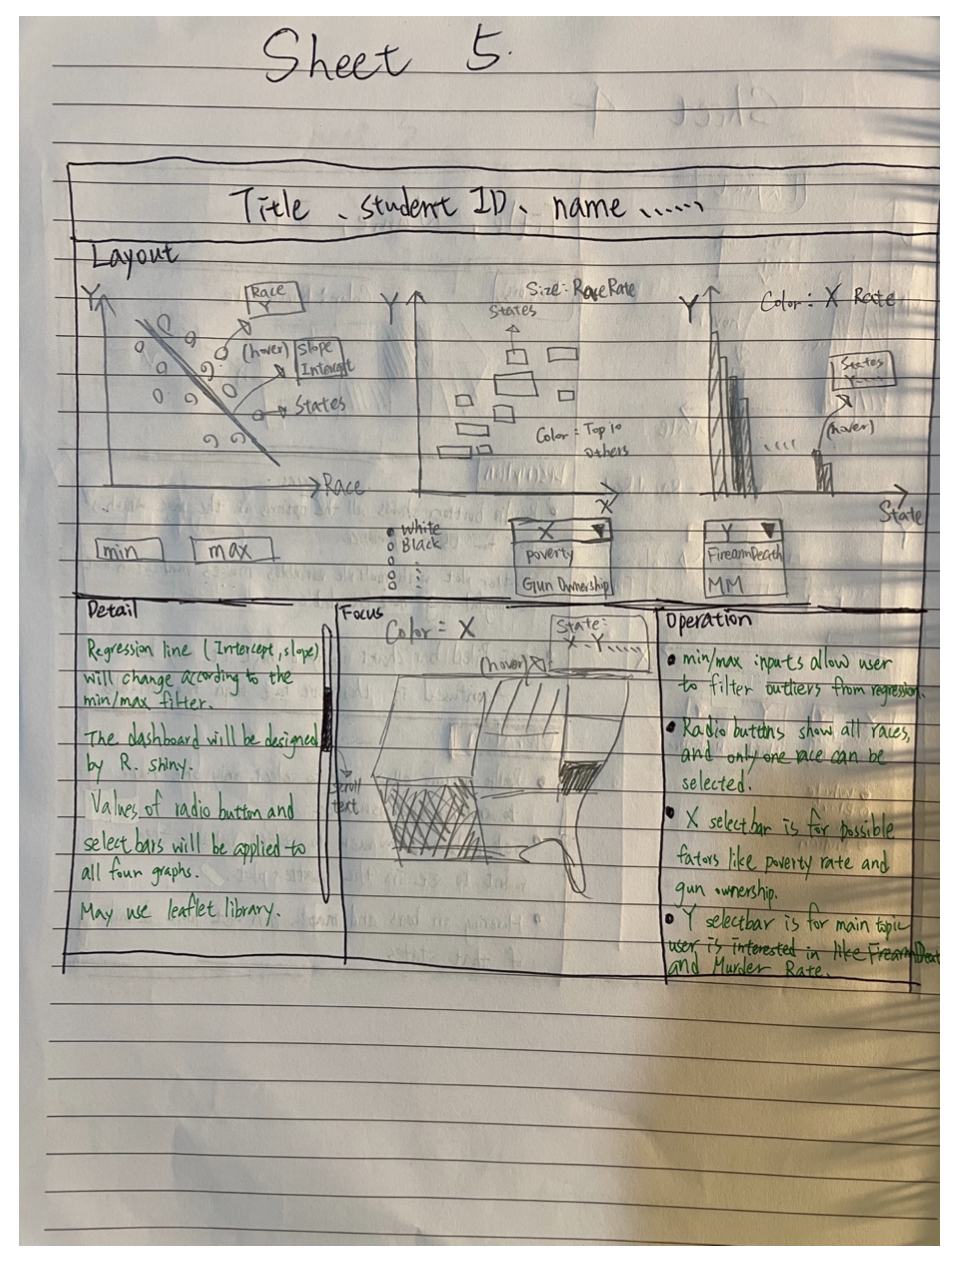 Sheet 5.
Title、student ID、name ......
Layout
Y
Race
Y
(hover)
Slope
Intercept
States
Race
min
max
Y
Size: Race Rate
States
Color: Top 10
others
X
White
Black
X
poverty
Gun Ownership
Y
Color: X Rate
States
Y......
(hover)
....
State
Y
FirearmDeath
MM
Detail
Regression line (Intercept, slope)
will change according to the
min/max filter.
The dashboard will be designed
by R. shiny.
Values of radio button and
select bars will be applied to
all four graphs.
May use leaflet library.
scroll
text
Focus
Color = X
State:
X - Y.....
(hover)
Operation
min/max inputs allow user
to filter outliers from regression.
Radio buttons show all races,
and only one race can be
selected.
X selectbar is for possible
fators like poverty rate and
gun ownership.
Y selectbar is for main topic
user is interested in like FirearmDeat
and Murder Rate.